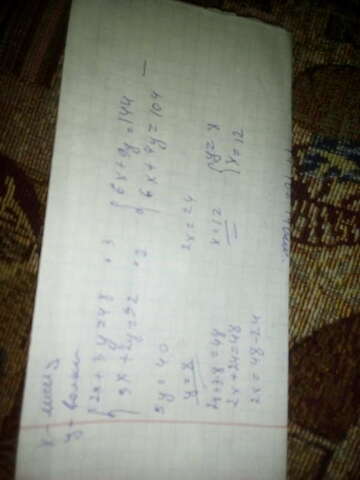 x -
y -
{2x + 3y = 48 · 3 {6x + 9y = 144
{3x + 2y = 52 · 2 {6x + 4y = 104 —
5y = 40
y = 8
2x + 3·8 = 48
2x + 24 = 48
2x = 48 - 24
2x = 24
x = 12
{y = 8
{x = 12